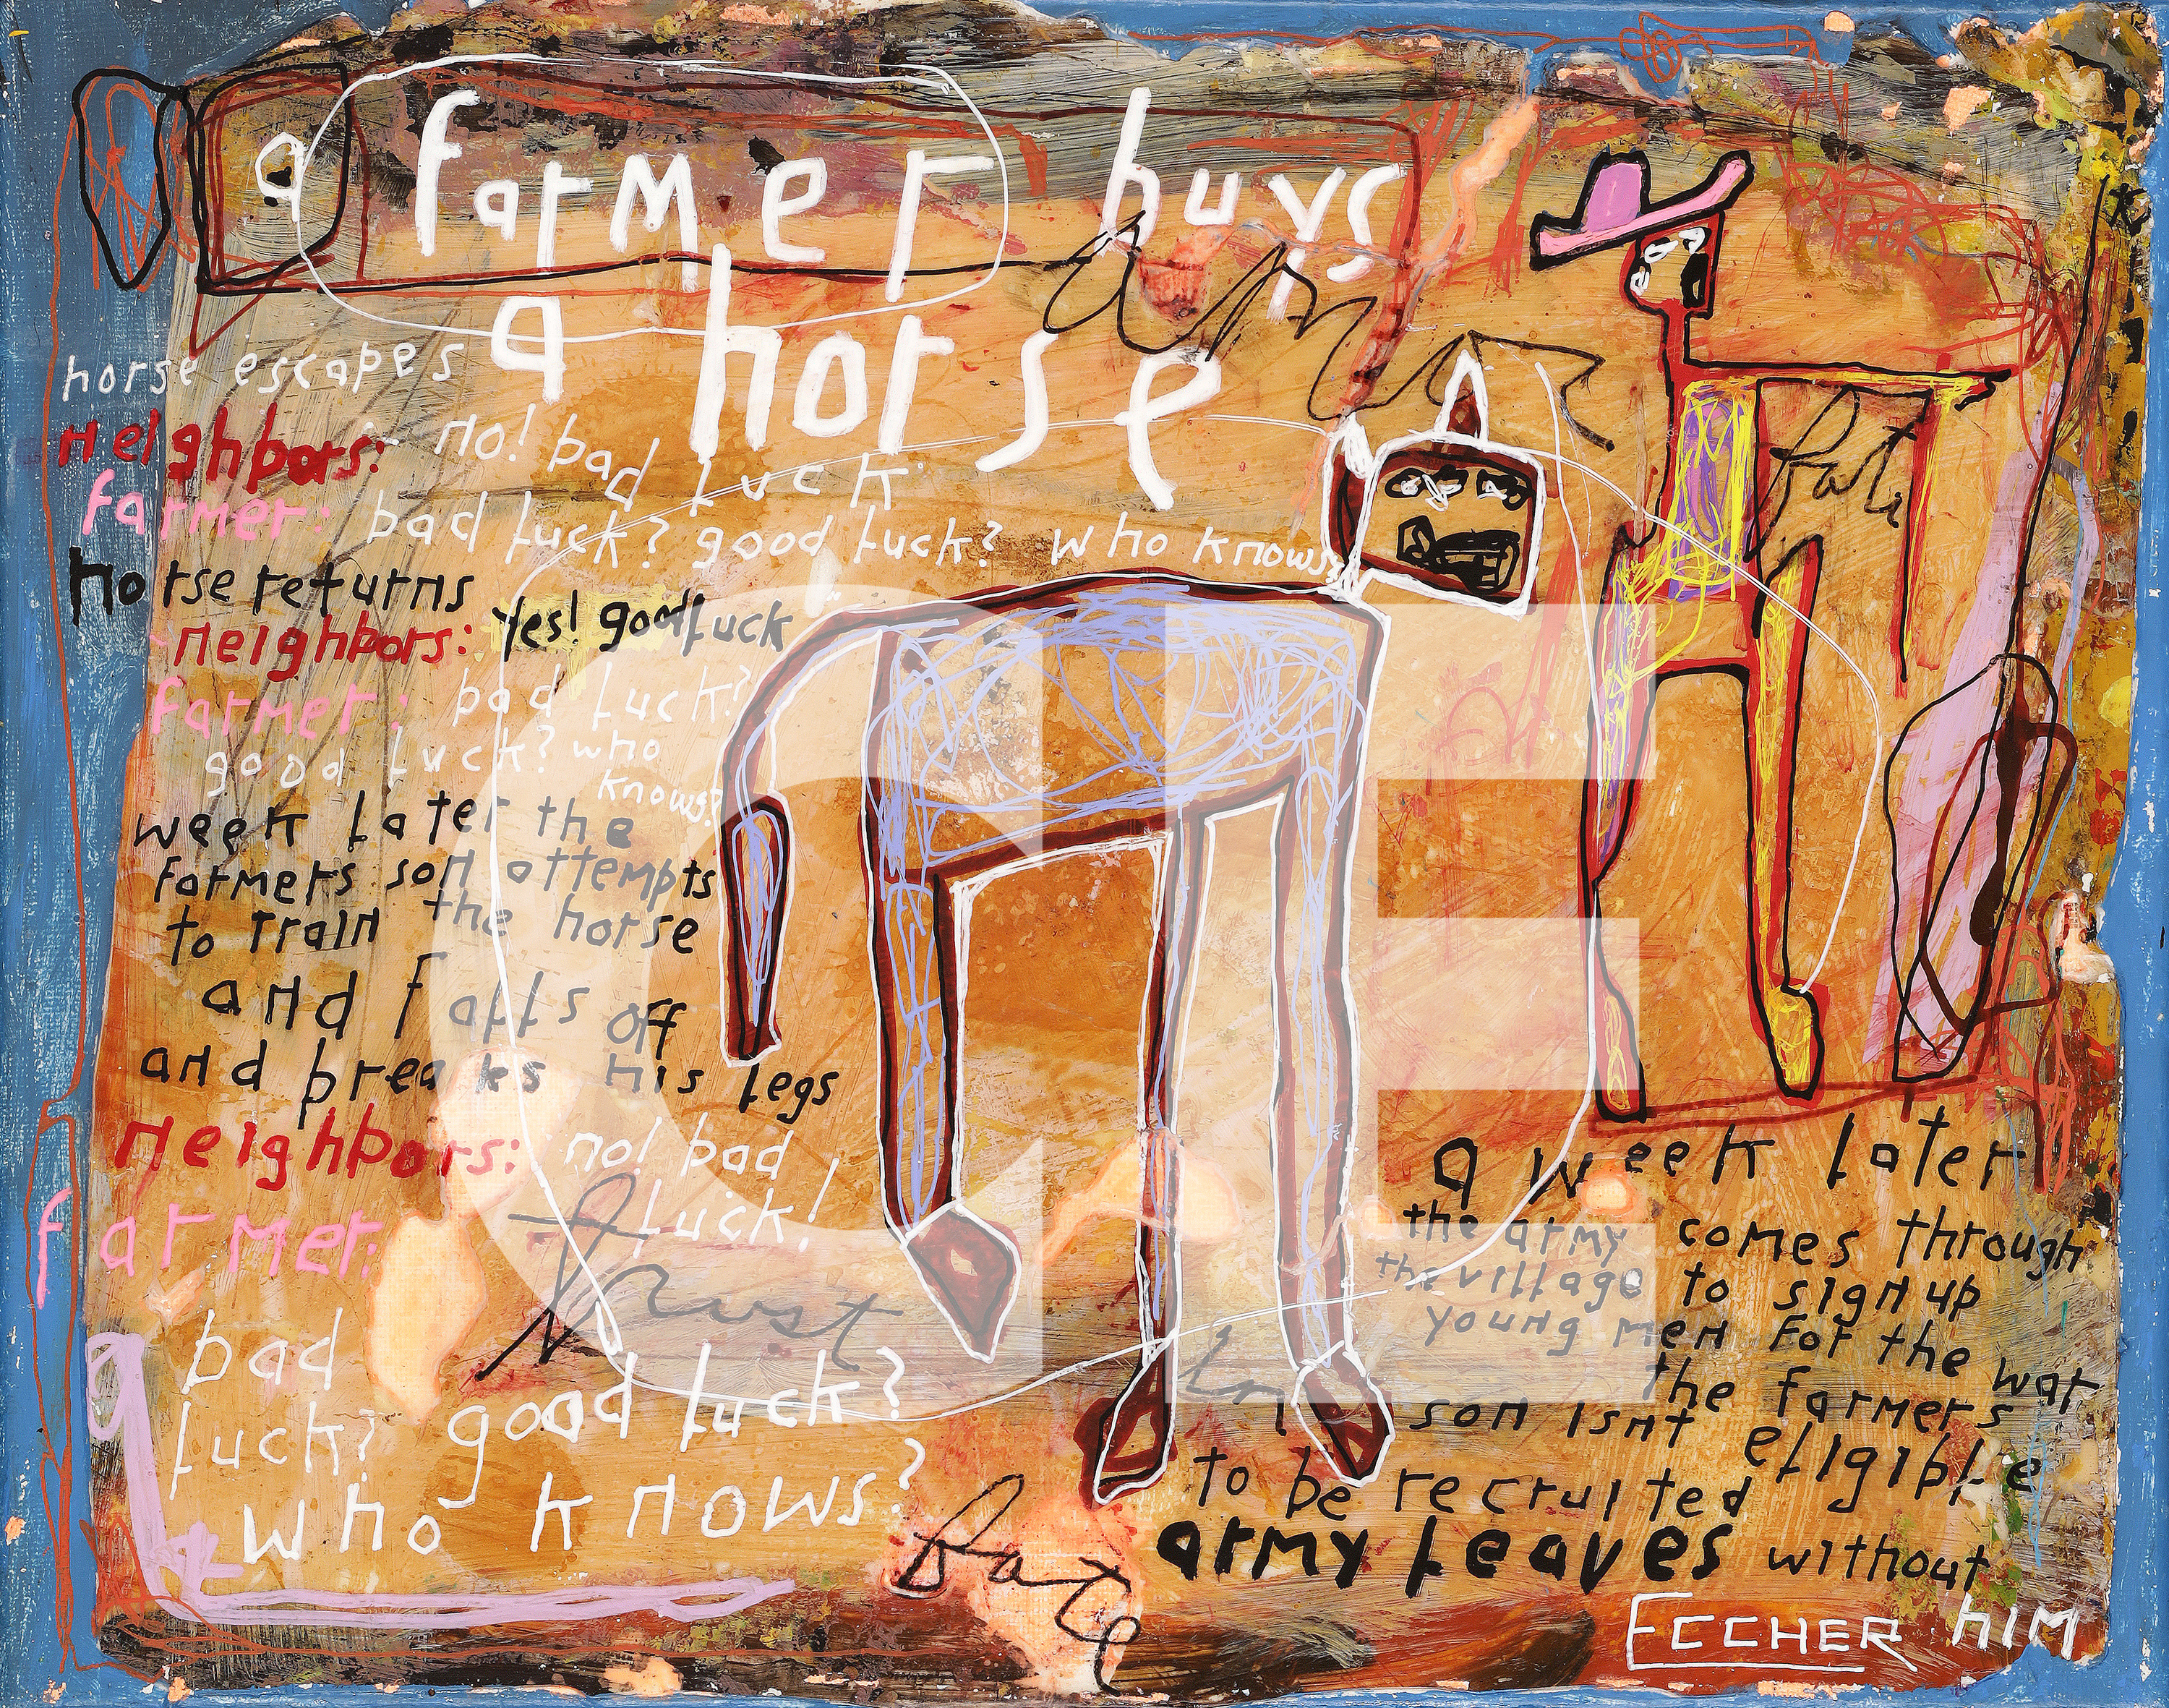 a farmer buys
a horse
horse escapes
neighbors: no! bad luck
farmer: bad luck? good luck? who knows?
horse returns
neighbors: yes! good luck
farmer: bad luck?
good luck? who
knows?
week later the
farmers son attempts
to train the horse
and falls off
and breaks his legs
neighbors: no! bad
luck!
farmer:
bad
luck? good luck?
who knows?
amor
fati
trust
in
fate
a week later
the army comes through
the village to sign up
young men for the war
the farmers
son isnt eligible
to be recruited
army leaves without
him
ECCHER
CE